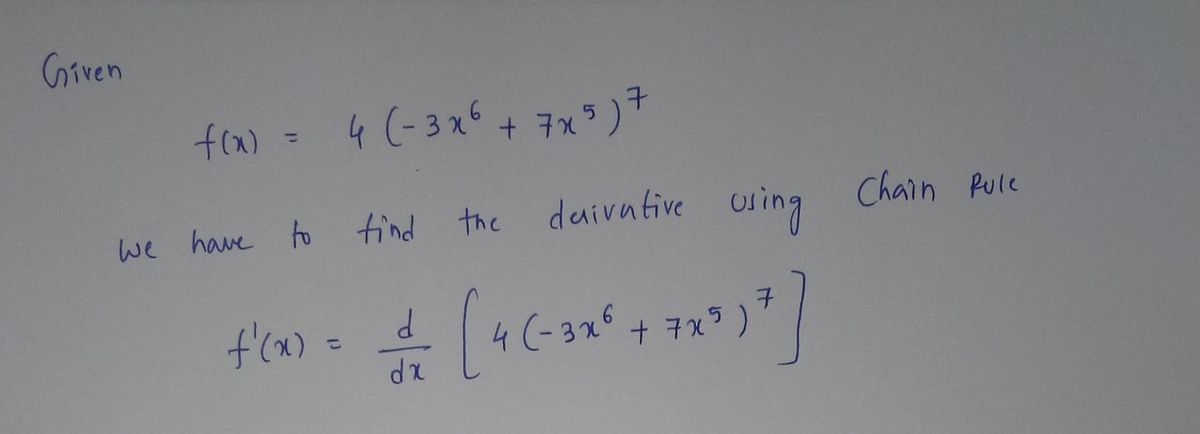 Given
f(x) = 4 (-3x⁶ + 7x⁵)⁷
we have to find the derivative using Chain Rule
f'(x) = d/dx [4 (-3x⁶ + 7x⁵)⁷]